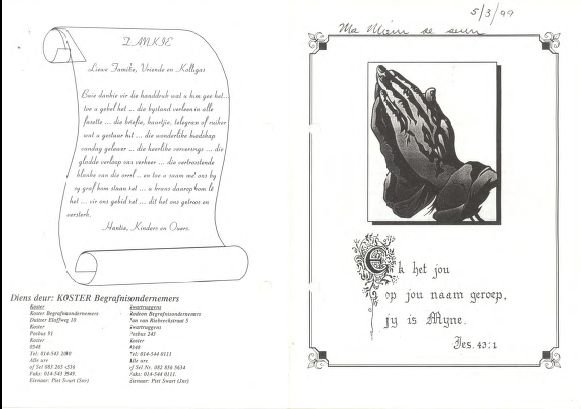 DANKIE
Liewe Familie, Vriende en Kollegas
Baie dankie vir die handdruk wat u kom gee het...
toe u gebel het ... die bystand verleen in alle
fasette ... die briefie, kaartjie, telegram of ruiker
wat u gestuur het ... die wonderlike boodskap
vandag gelewer ... die heerlike verversings ... die
gladde verloop van verkeer ... die vertroostende
klanke van die orrel .. en toe u saam met ons by
sy graf kom staan het ... u krans daarop kom lê
het ... vir ons gebid het ... dit het ons getroos en
versterk.
Hantie, Kinders en Ouers.
Diens deur: KOSTER Begrafnisondernemers
Koster
Koster Begrafnisondernemers
10
Koster
Posbus 91
Koster
0348
Tel: 014-543
Alle ure
of Sel 083 265
Faks: 014-543
Eienaar: Piet Swart (Snr)
Swartruggens
Rodeon Begrafnisondernemers
Jan van Riebeeckstraat 5
Swartruggens
Posbus 243
Koster
Tel: 014-544 0111
Alle ure.
of Sel Nr. 082 856 5634
Faks: 014-544 0111.
Eienaar: Piet Swart (Jnr)
5/3/99
Ma Mein se seun
Ek het jou
op jou naam geroep,
jy is Myne.
Jes. 43:1